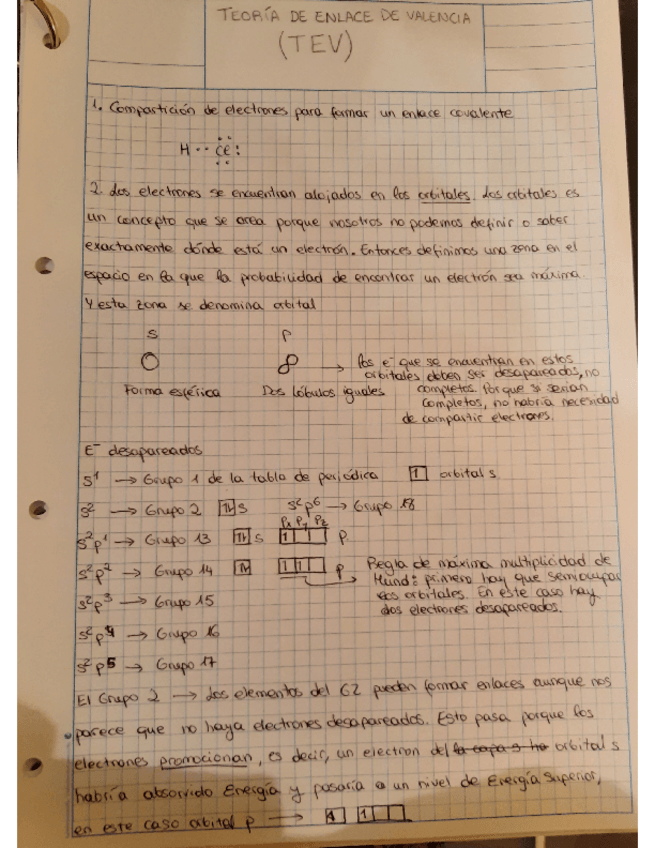 TEORÍA DE ENLACE DE VALENCIA
(TEV)
1. Compartición de electrones para formar un enlace covalente
H ·· Cl :
2. Los electrones se encuentran alojados en los orbitales. Los orbitales es
un concepto que se crea porque nosotros no podemos definir o saber
exactamente dónde está un electrón. Entonces definimos una zona en el
espacio en la que la probabilidad de encontrar un electrón sea máxima.
Y esta zona se denomina orbital
s p
→ Los e⁻ que se encuentran en estos
orbitales deben ser desapareados, no
Forma esférica Dos lóbulos iguales completos. Porque si serían
completos, no habría necesidad
de compartir electrones.
E⁻ desapareados
s¹ → Grupo 1 de la tabla de periódica 1 orbital s
s² → Grupo 2 1↓ s s²p⁶ → Grupo 18
Px Py Pz
s²p¹ → Grupo 13 1↓ s 1 p
s²p² → Grupo 14 1↓ 1 1 p Regla de máxima multiplicidad de
Hund: primero hay que semiocupar
s²p³ → Grupo 15 los orbitales. En este caso hay
dos electrones desapareados.
s²p⁴ → Grupo 16
s²p⁵ → Grupo 17
El Grupo 2 → Los elementos del G2 pueden formar enlaces aunque nos
parece que no haya electrones desapareados. Esto pasa porque los
electrones promocionan, es decir, un electron del la capa s ha orbital s
habría absorvido Energía y pasaría a un nivel de Energía Superior,
en este caso orbital p → 1 1